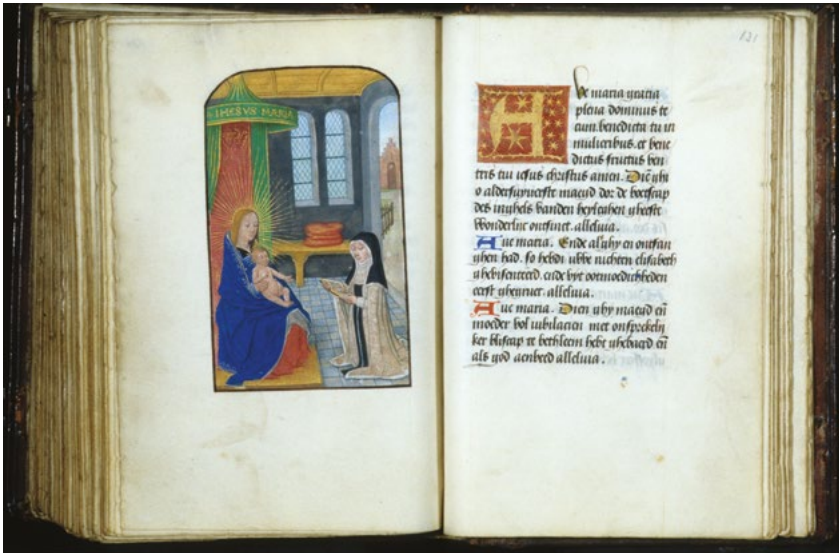 IHESVS MARIA
131
Aue maria gracia
plena dominus te
cum. benedicta tu in
mulieribus. et bene
dictus fructus ven
tris tui iesus christus amen. Die ghi
o alderfuyuerste maeud dor de boetscap
des inghels vanden heyleghen gheeste
wonderlic ontfinct. alleluia.
Aue maria. Ende als ghy en ontfan
ghen had. so hebdi uwe nichten elisabeth
ghevisenteerd. ende vyt ootmoedichheden
eerst ghegruet. alleluia.
Aue maria. Dien ghy maeud en
moeder vol iubilacien met onsprekelij
ker bliscap te bethleem hebt ghebaerd en
als god aenbeed alleluia.